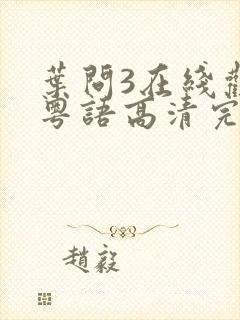 葉問3在綫
粵語高清完
趙毅